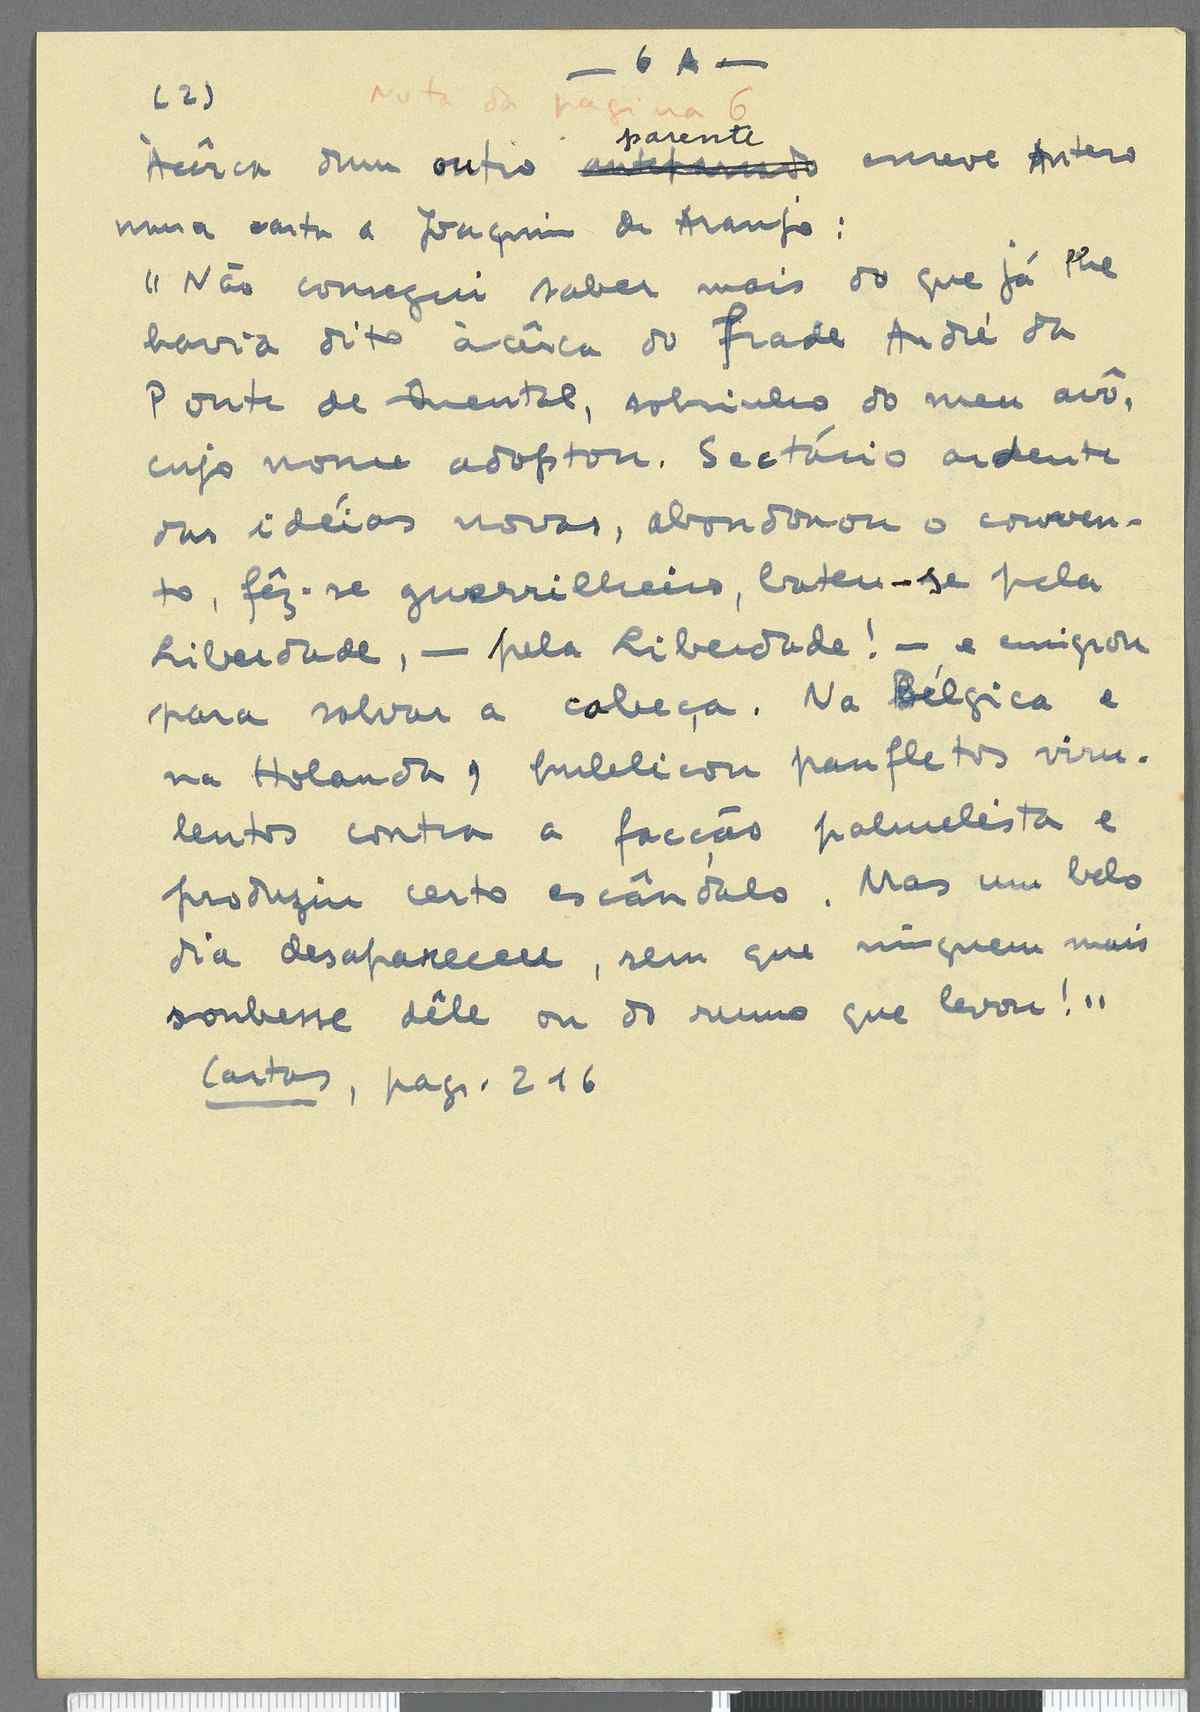 — 6 A —
(2)
Nota da pagina 6
parente
Àcêrca dum outro antepassado escreve Antero
numa carta a Joaquim de Araujo :
" Não consegui saber mais do que já lhe
havia dito àcêrca do Frade André da
Ponte de Quental, sobrinho do meu avô,
cujo nome adoptou. Sectário ardente
das idéias novas, abandonou o conven-
to, fêz-se guerrilheiro, bateu-se pela
Liberdade, — pela Liberdade! — e emigrou
para salvar a cabeça. Na Bélgica e
na Holanda, publicou panfletos viru-
lentos contra a facção palmelista e
produziu certo escândalo. Mas um belo
dia desapareceu, sem que ninguem mais
soubesse dêle ou do rumo que levou! "
Cartas, pag. 216